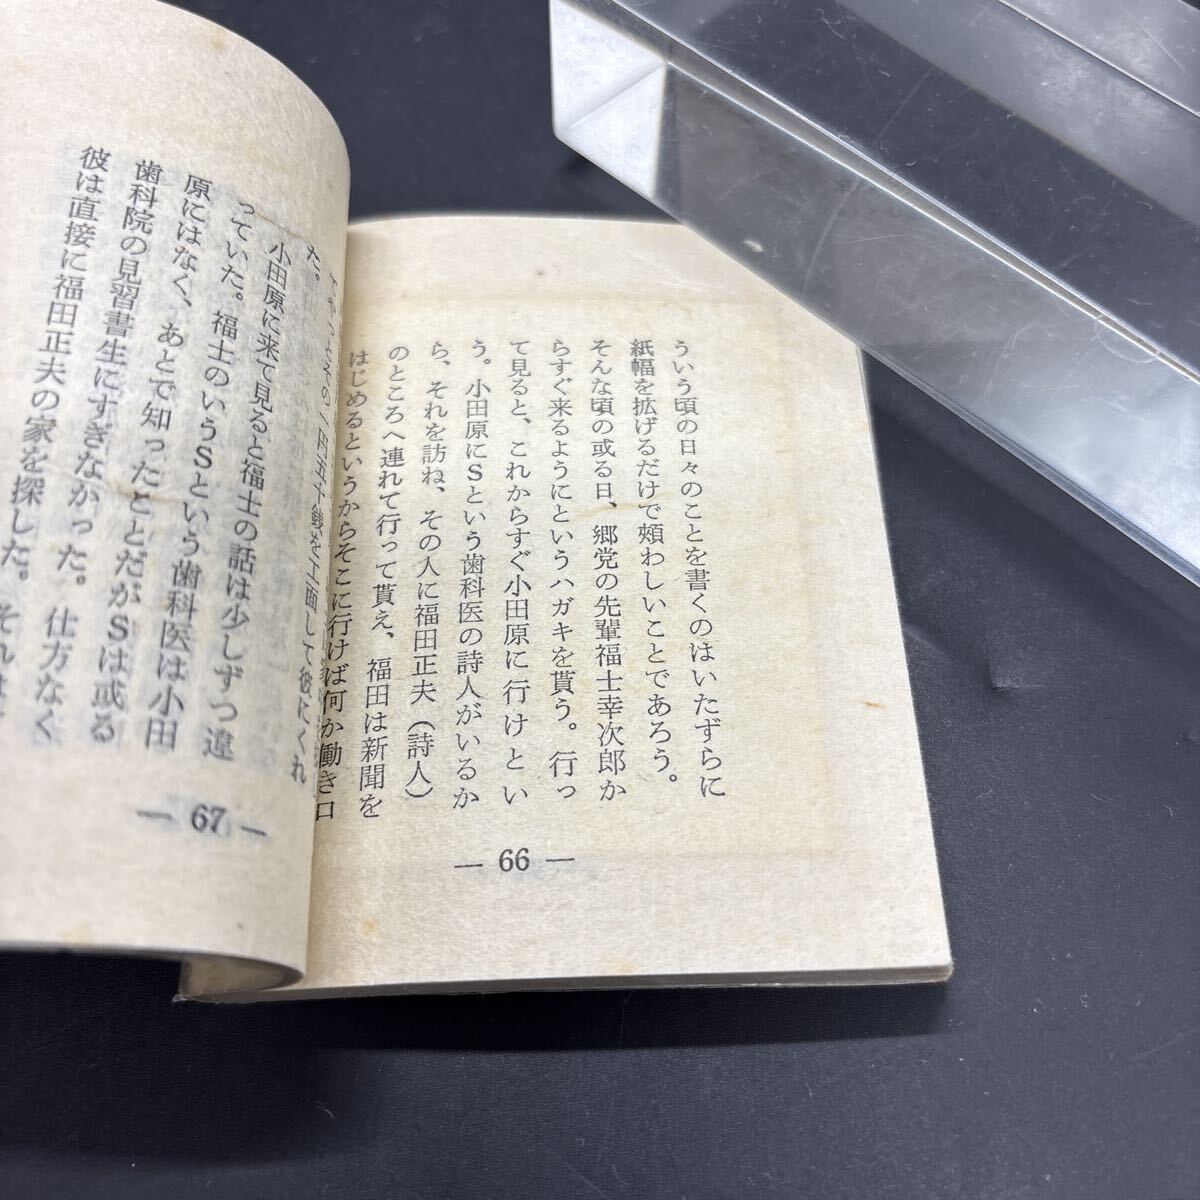 ういう頃の日々のことを書くのはいたずらに
紙幅を拡げるだけで煩わしいことであろう。
そんな頃の或る日、郷党の先輩福士幸次郎か
らすぐ来るようにというハガキを貰う。行っ
て見ると、これからすぐ小田原に行けとい
う。小田原にSという歯科医の詩人がいるか
ら、それを訪ね、その人に福田正夫（詩人）
のところへ連れて行って貰え、福田は新聞を
はじめるというからそこに行けば何か働き口
— 66 —
の一円五十銭を工面して彼にくれ
た。
小田原に来て見ると福士の話は少しずつ違
っていた。福士のいうSという歯科医は小田
原にはなく、あとで知ったことだがSは或る
歯科院の見習書生にすぎなかった。仕方なく
彼は直接に福田正夫の家を探した。それは
— 67 —